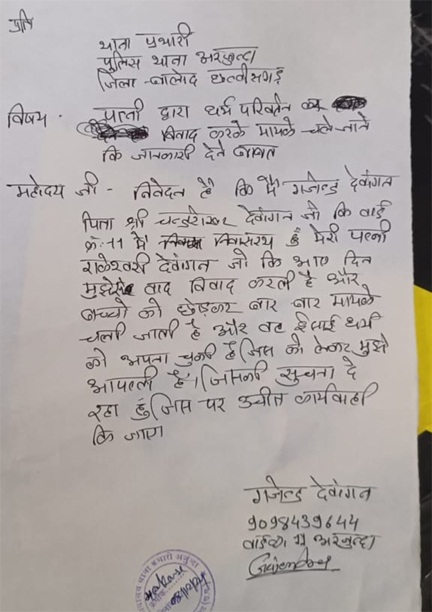 प्रति
थाना प्रभारी
पुलिस थाना अरजुन्दा
जिला-बालोद छत्तीसगढ़
विषय - पत्नी द्वारा धर्म परिवर्तन कर
विवाद करके मायके चले जाने
कि जानकारी देने बाबत
महोदय जी - निवेदन है कि मैं गजेन्द्र देवांगन
पिता श्री चन्द्रशेखर देवांगन जो कि वार्ड
क्रं-11 में निवासरथ हुं मेरी पत्नी
राजेश्वरी देवांगन जो कि आए दिन
मुझसे वाद विवाद करती है और
बच्चो को छोड़कर बार बार मायके
चली जाती है और वह ईसाई धर्म
को अपना चुकी है जिस को लेकर मुझे
आपत्ती है। जिसकी सुचना दे
रहा हुं जिस पर उचीत कार्यवाही
कि जाए
गजेन्द्र देवांगन
9098439644
वार्ड 11 अरजुन्दा
Gajendra